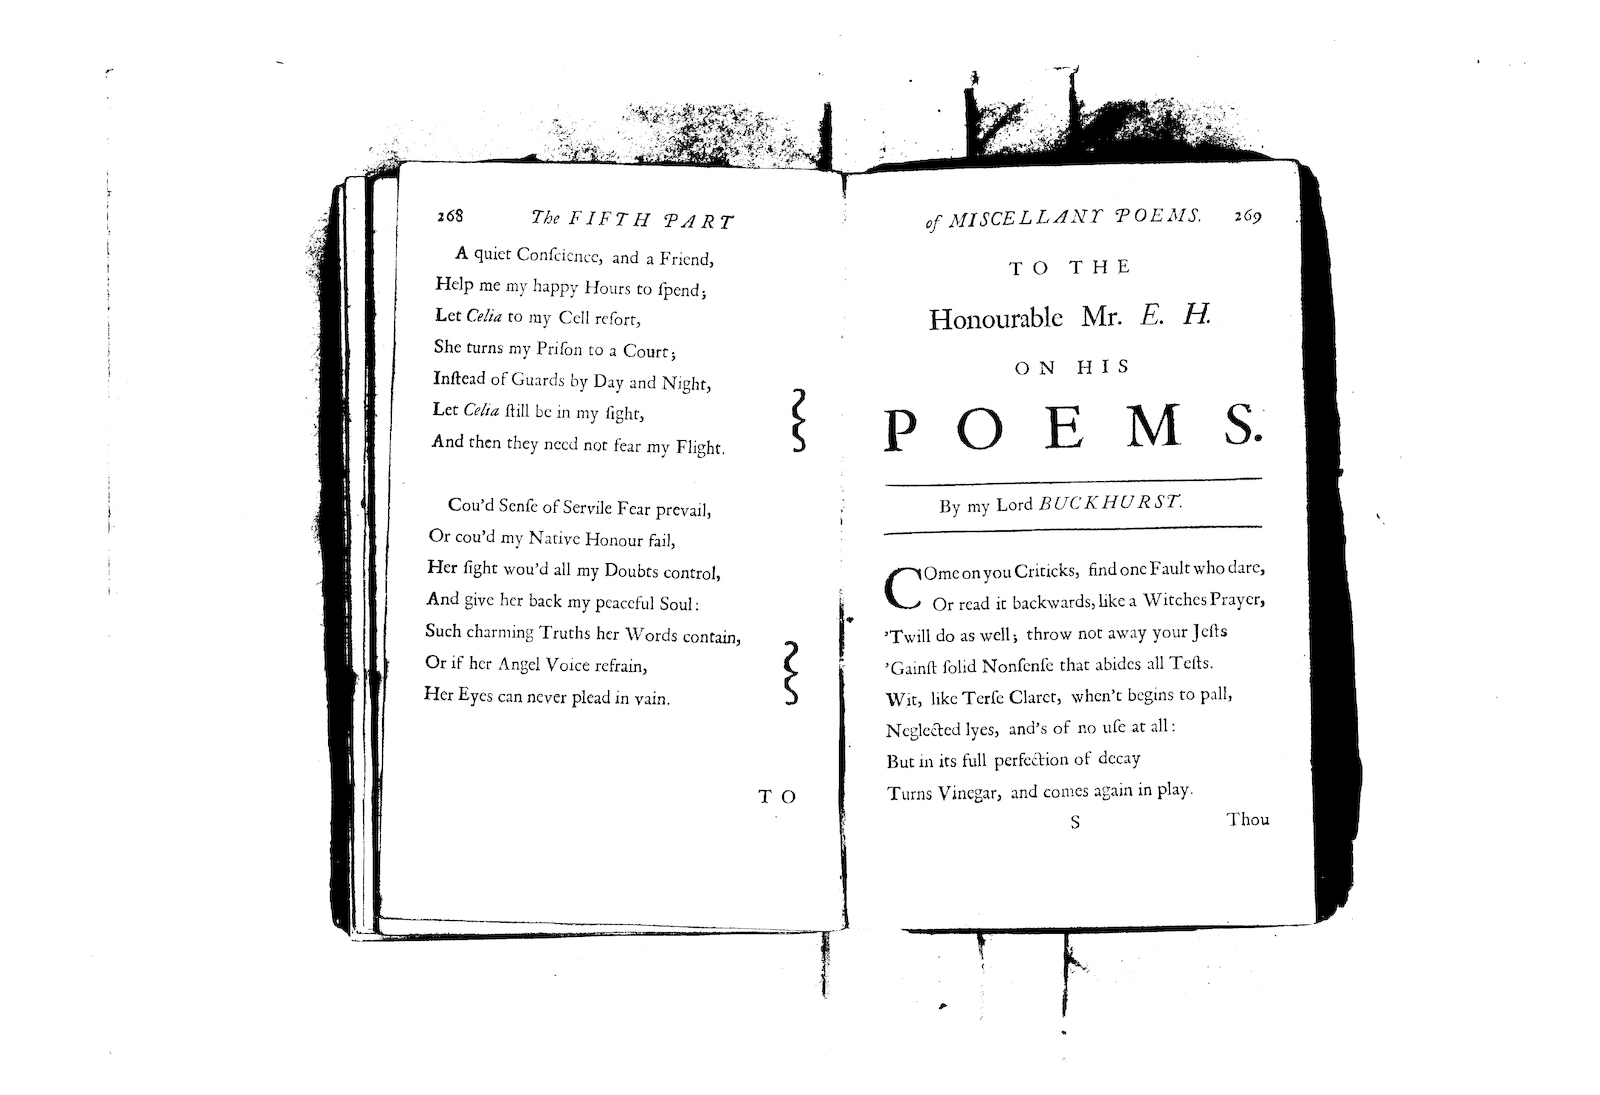 268 The FIFTH PART
A quiet Conſcience, and a Friend,
Help me my happy Hours to ſpend;
Let Celia to my Cell reſort,
She turns my Priſon to a Court;
Inſtead of Guards by Day and Night,
Let Celia ſtill be in my ſight,
And then they need not fear my Flight.
Cou'd Senſe of Servile Fear prevail,
Or cou'd my Native Honour fail,
Her ſight wou'd all my Doubts control,
And give her back my peaceful Soul:
Such charming Truths her Words contain,
Or if her Angel Voice refrain,
Her Eyes can never plead in vain.
TO
of MISCELLANY POEMS. 269
TO THE
Honourable Mr. E. H.
ON HIS
POEMS.
By my Lord BUCKHURST.
COme on you Criticks, find one Fault who dare,
Or read it backwards, like a Witches Prayer,
'Twill do as well; throw not away your Jeſts
'Gainſt ſolid Nonſenſe that abides all Teſts.
Wit, like Terſe Claret, when't begins to pall,
Neglected lyes, and's of no uſe at all:
But in its full perfection of decay
Turns Vinegar, and comes again in play.
S Thou